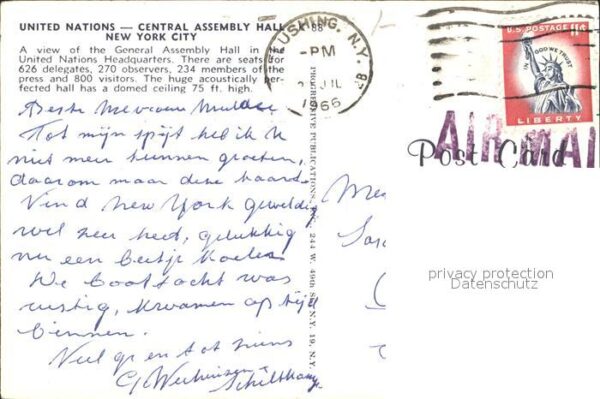 UNITED NATIONS — CENTRAL ASSEMBLY HALL 88
NEW YORK CITY
A view of the General Assembly Hall in the
United Nations Headquarters. There are seats for
626 delegates, 270 observers, 234 members of the
press and 800 visitors. The huge acoustically per-
fected hall has a domed ceiling 75 ft. high.
Beste Mevrouw
Tot mijn spijt heb ik U
niet meer kunnen groeten,
daarom maar deze kaart.
Vind New York geweldig
wel zeer heet, gelukkig
nu een beetje koeler
De boottocht was
rustig, kwamen op tijd
binnen.
Veel gr en tot ziens
FLUSHING, N.Y.
PM
JUL
1966
PROGRESSIVE PUBLICATIONS, 244 W. 49th ST. N.Y. 19, N.Y.
U.S. POSTAGE 11¢
IN GOD WE TRUST
LIBERTY
AIR MAIL
Post Card
privacy protection
Datenschutz